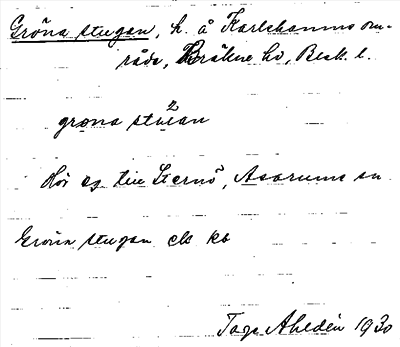 Gröna stugan, h. å Karlshamns om-
råde, Bräkne hd, Blek. l.
2
grøna stuan
Hör eg till Sternö, Asarums sn
Gröna stugan ek kb
Tage Ahldén 1930